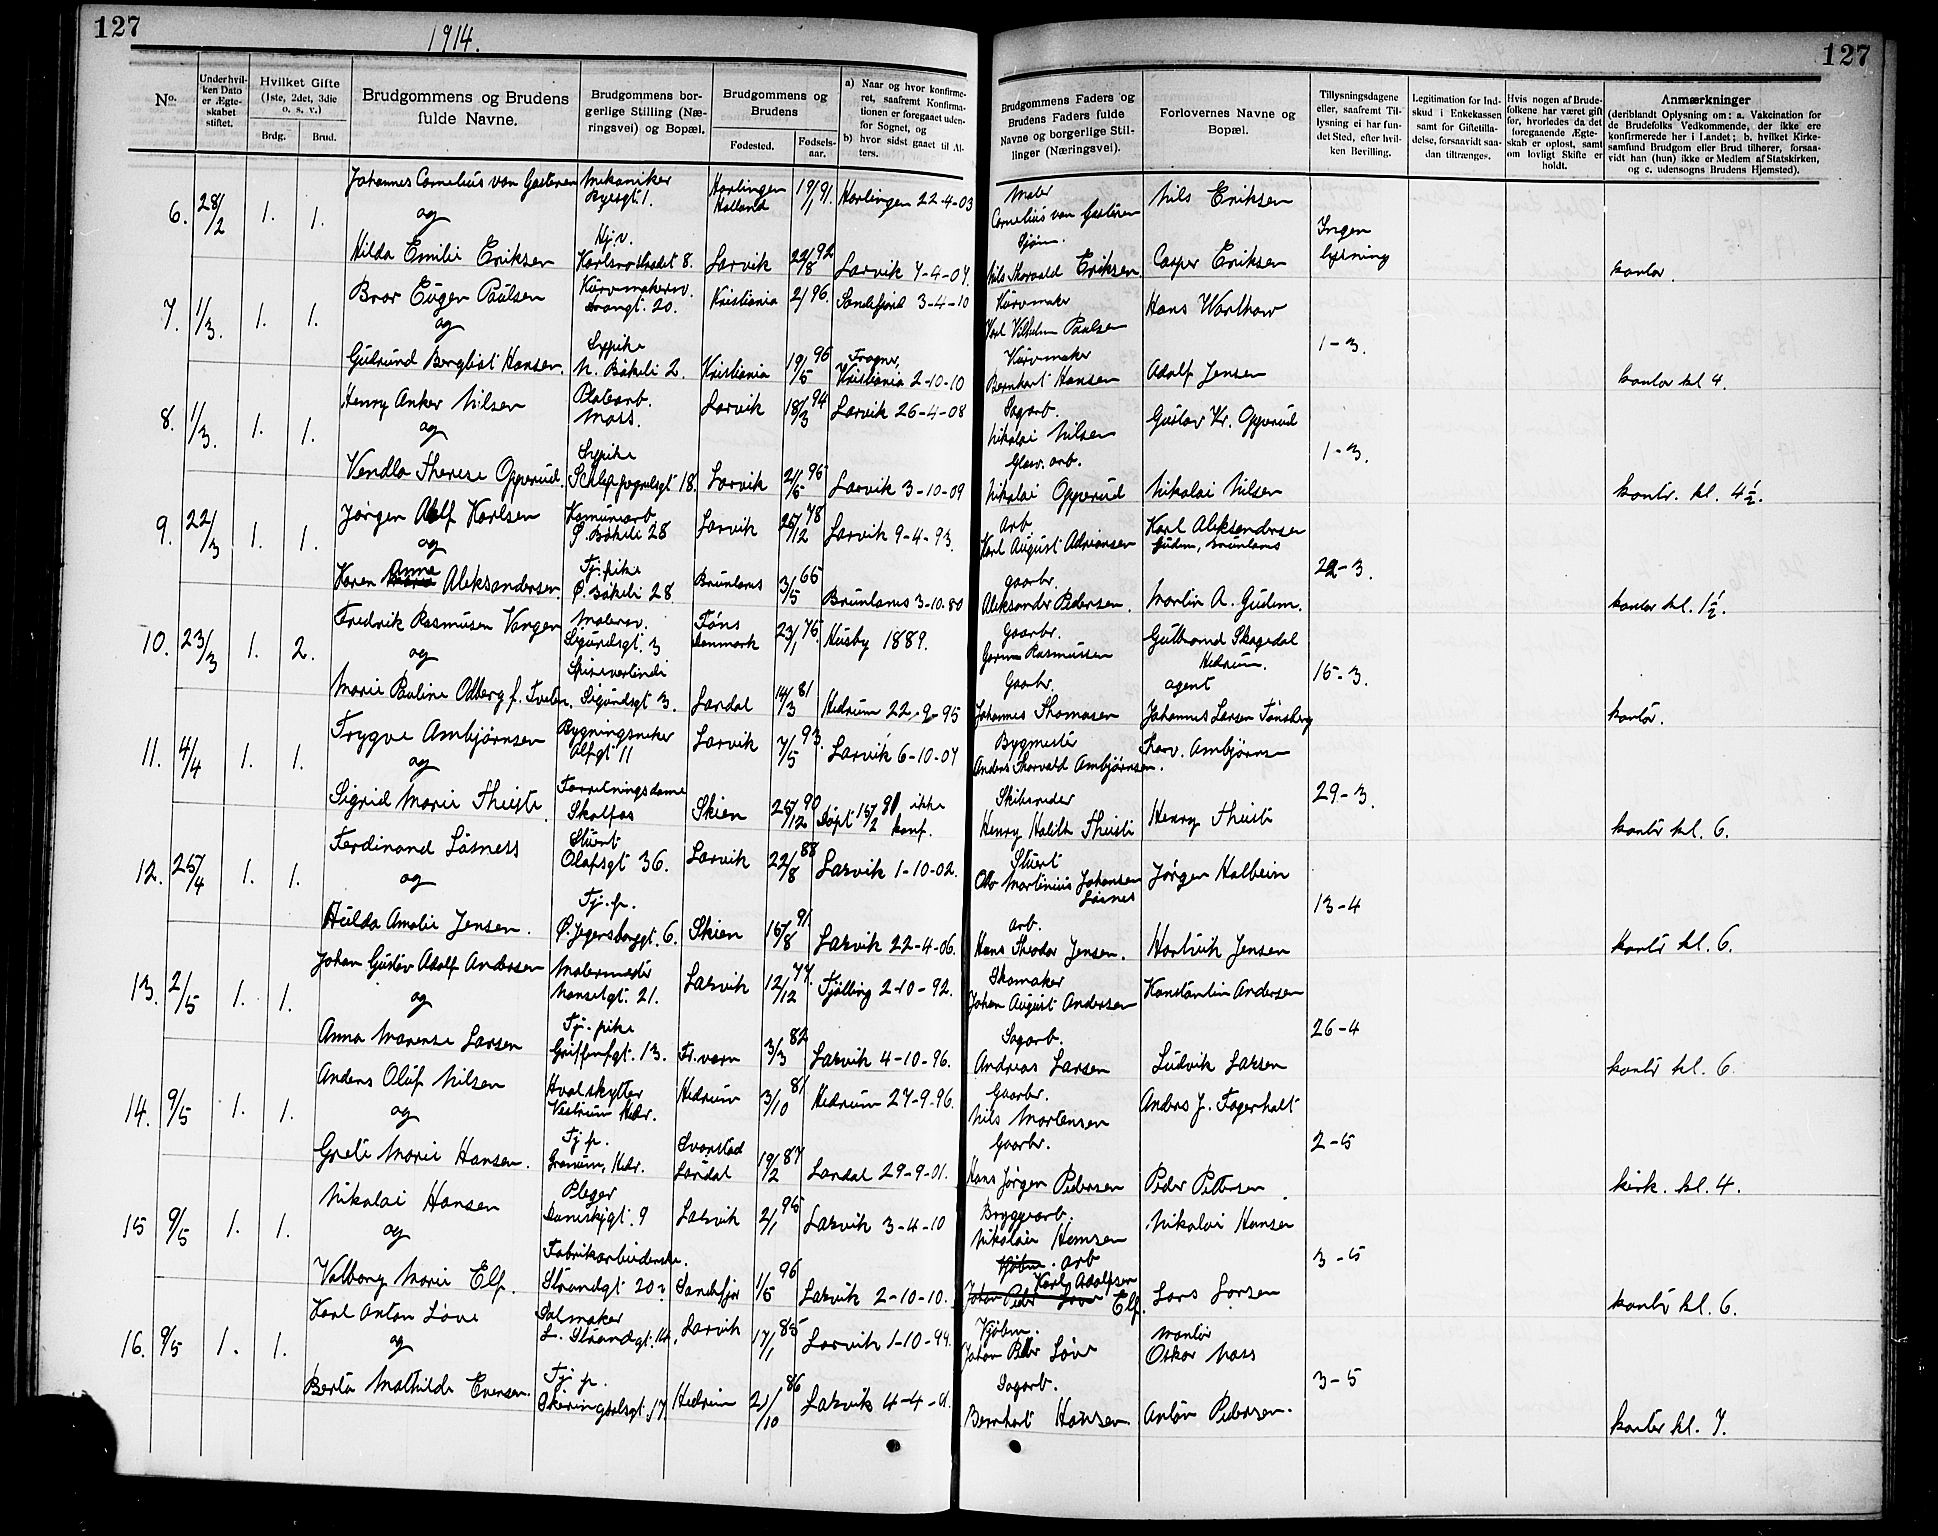 127
1914.
127
No.
Under hvil-
ken Dato
er Ægte-
skabet
stiftet.
Hvilket Gifte
(1ste, 2det, 3die
o. s. v.)
Brdg.
Brud.
Brudgommens og Brudens
fulde Navne.
Brudgommens bor-
gerlige Stilling (Næ-
ringsvei) og Bopæl.
Brudgommens og
Brudens
Fødested.
Fødsels-
aar.
a) Naar og hvor konfirme-
ret, saafremt Konfirma-
tionen er foregaaet uden-
for Sognet, og
b) hvor sidst gaaet til Al-
ters.
Brudgommens Faders og
Brudens Faders fulde
Navne og borgerlige Stil-
linger (Næringsvei).
Forlovernes Navne og
Bopæl.
Tillysningsdagene
eller, saafremt Til-
lysning ei har fun-
det Sted, efter hvil-
ken Bevilling.
Legitimation for Ind-
skud i Enkekassen
samt for Giftetilla-
delse, forsaavidt saa-
dan tiltrænges.
Hvis nogen af Brude-
folkene har været gift
før, hvorledes da det
foregaaende Ægte-
skab er opløst, samt
om lovligt Skifte er
holdt.
Anmærkninger
(deriblandt Oplysning om: a. Vakcination for
de Brudefolks Vedkommende, der ikke ere
konfirmerede her i Landet; b. hvilket Kirke-
samfund Brudgom eller Brud tilhører, forsaa-
vidt han (hun) ikke er Medlem af Statskirken,
og c. udensogns Brudens Hjemsted).
Johannes Cornelius van Gasteren Mekaniker Harlingen 19/1 91. Harlingen 22-4-03 Maler Nils Eriksen
6. 28/2 1. 1. og Holland Cornelius van Gasteren Ingen
Hj.v. Sjøm. lysning
Hilda Emilie Eriksen 8. Larvik 22/8 92 Larvik 7-4-07. Nils Thorvald Eriksen Casper Eriksen kontor.
Bror Eugen Paulsen Kurvmakersv. Kristiania 96. Sandefjord 3-4-10 Kurvmaker
7. 1/3. 1. 1. og 20. Karl Vilhelm Paulsen Hans Warthow
Sypike Frogner, Kurvmaker 1-3.
Gudrund Bergliot Hansen. N. Bøkeli 2. Kristiania 19/5 96 Kristiania 2-10-10 Bernhart Hansen Adolf Jensen kontor kl 4.
Henry Anker Nilsen Platearb. Larvik 18/3 94 Larvik 26-4-08 Sagarb.
8. 1/3. 1. 1. og Moss. Nikolai Nilsen Gustav Kr. Opperud
Sypike Glasv. arb. 1-3.
Vendla Therese Opperud. 18. Larvik 21/6 95 Larvik 3-10-09 Nikolai Opperud Nikolai Nilsen kontr. kl. 4½.
Jørgen Alf Karlsen Komunearb. Larvik 25/12 78 Larvik 9-4-93. arb Karl Aleksandersen
9. 22/3 1. 1. og Ø. Bøkeli 28 Karl August Adriansen Gudem, Brunlanes
Anne Tj. pike gaarbr. 22-3.
Karen Aleksandersen. Ø. Bøkeli 28. Brunlanes 3/5 66 Brunlanes 3-10-80 Aleksander Pedersen. Martin A. Gudem. kontor kl. 1½.
Fredrik Rasmusen Vangen Malersv. Føns 23/1 75. Husby 1889. Gaarbr.
10. 23/3 1. 2. og Sigurdsgt. 3 Danmark Rasmussen Gulbrand Skagedal
Spiseverlinde Gaarbr. Hedrum. 15-3.
Marie Pauline Odberg f. Tveten. Sigurdsgt 3. Lardal 14/3 81 Hedrum 22-9-95 Johannes Thomasen agent Johannes Larsen Tønsberg kontor.
Trygve Ambjørnsen Bygningssneker Larvik 7/5 93. Larvik 6-10-07 Bygmester Torv. Ambjørnsen
11. 4/4 1. 1. og Olfgt 11 Anders Thorvald Ambjørnsen.
Forretningsdame Skibsreder 29-3.
Sigrid Marie Thiiste. Skotfos Skien 25/12 90 Døpt 15/2 91 ikke konf. Henry Thiiste Henry Thiiste kontor kl. 6.
Ferdinand Løsness Stuert Larvik 22/8 88 Larvik 1-10-02. Stuert
12. 25/4 1. 1. og Olafsgt 36. Martinius Johansen Løsnes Jørgen Holbein
Tj. p. arb. 13-4
Hulda Amalie Jensen. Ø. Jegersborggt. 6. Skien 16/8 91 Larvik 22-4-06. Hans Theodor Jensen. Hartvik Jensen kontor kl. 6.
Johan Gustav Adolf Andersen Malermester Larvik 12/12 77. Tjølling 2-10-92. Skomaker Konstantin Andersen
13. 2/5 1. 1. og Nansetgt. 21. Johan August Andersen
Tj. pike Sagarb. 26-4
Anna Marense Larsen Griffenfgt. 13. Fr. værn 3/3 82 Larvik 4-10-96. Andreas Larsen Ludvik Larsen kontor kl. 6
Anders Oluf Nilsen Hvalskytter Hedrum 3/10 81 Hedrum 27-9-96. Gaarbr. Anders J. Fagerholt
14. 9/5 1. 1. og Vestrum Hedr. Nils Mortensen
Tj. p. Svarstad Gaarbr. 2-5
Grete Marie Hansen. Hedr. Lardal 19/2 87 Lardal 29-9-01. Hans Jørgen Pedersen Peder Pettersen kirk. kl. 4.
Nikolai Hansen Pleger Larvik 2/1 95 Larvik 3-4-10 Bryggearb. Nikolai Hansen
15 9/5 1. 1. og 9 Nikolai Hansen
Fabrikarbeiderske. arb 3-5
Valborg Marie Elf. Strandgt 20 Sandefjor 1/5 96 Larvik 2-10-10. Karl Adolfsen Elf. Lars Larsen kontor kl. 6.
Karl Anton Løve Salmaker Larvik 17/1 85 Larvik 1-10-99. Kjøbm. Montør
16. 9/5 1. 1. og L. Strandgt. 14, Johan Peder Løve Oskar Moss
Tj. p. Sagarb. 3-5
Berta Mathilde Evensen. Skiringsalsgt. 17. Hedrum 21/10 86 Larvik 4-4-01. Bernhart Hansen Anton Pedersen. kontor kl. 7.